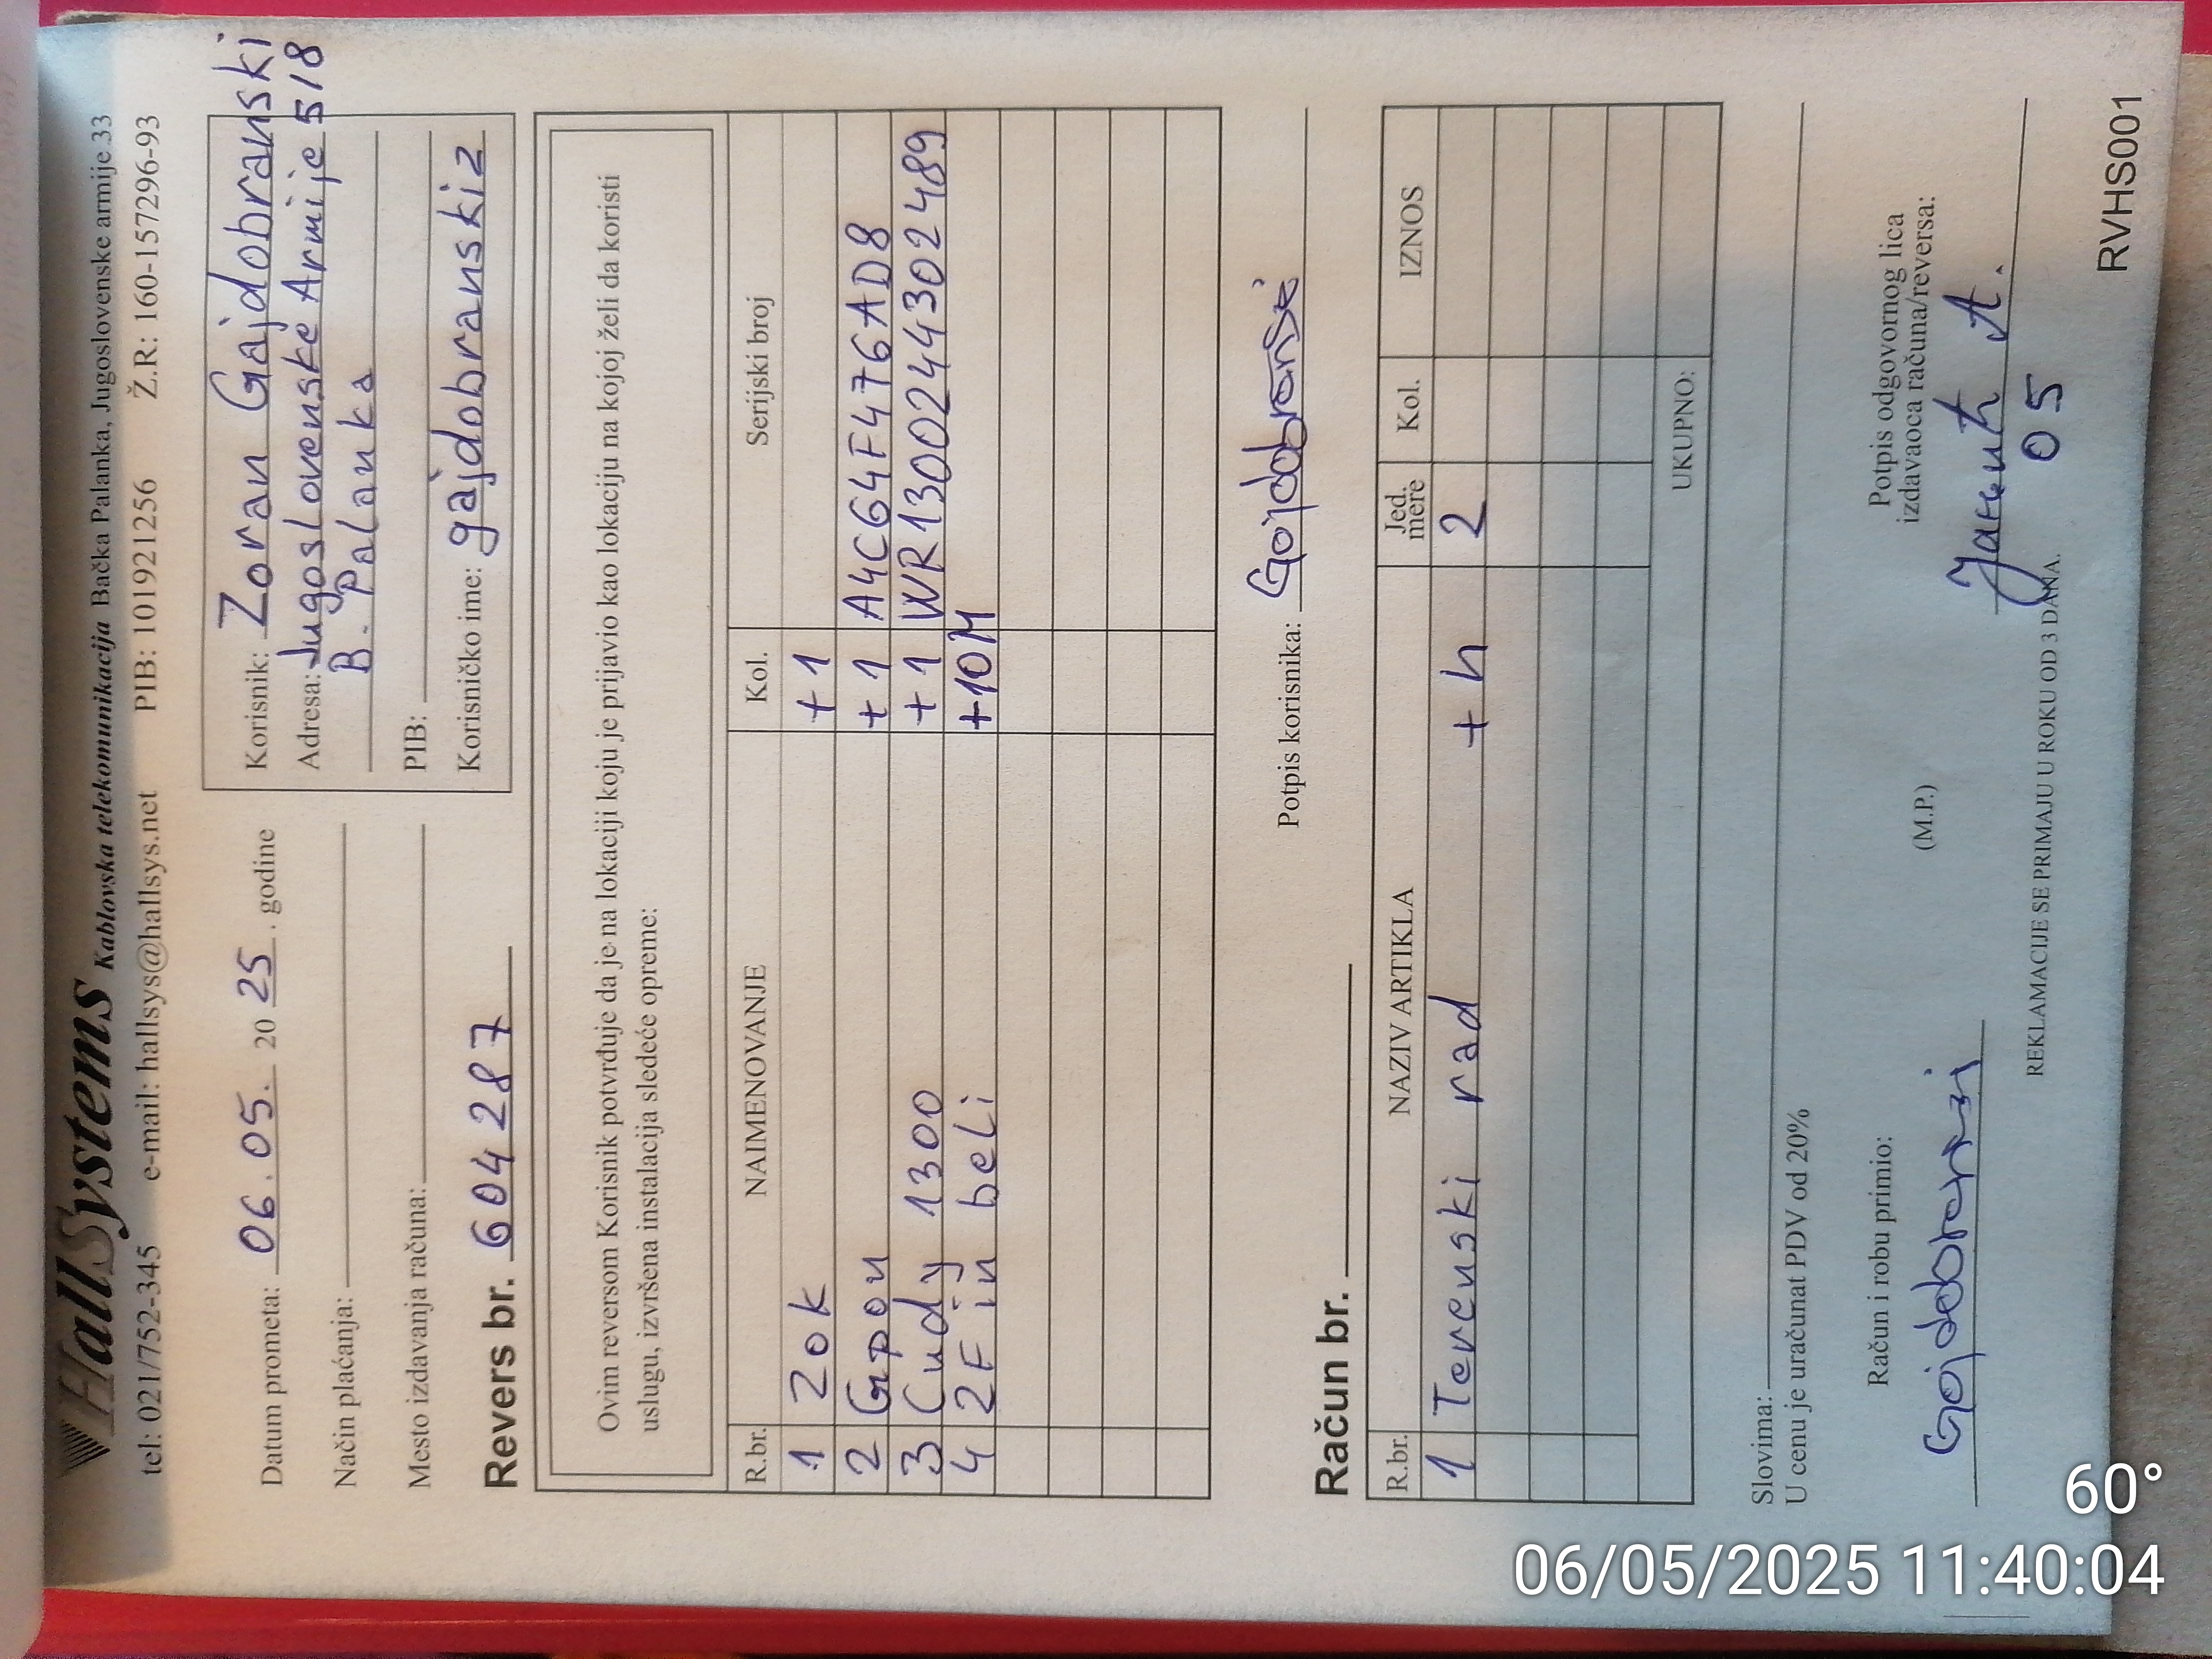 HallSystems Kablovska telekomunikacija Bačka Palanka, Jugoslovenske armije 33
tel: 021/752-345 e-mail: hallsys@hallsys.net PIB: 101921256 Ž.R: 160-157296-93
Datum prometa: 06.05. 20 25. godine
Način plaćanja:
Mesto izdavanja računa:
Korisnik: Zoran Gajdobranski
Adresa: Jugoslovenske Armije 5/8
B. Palanka
PIB:
Korisničko ime: gajdobranskiz
Revers br. 604287
Ovim reversom Korisnik potvrđuje da je na lokaciji koju je prijavio kao lokaciju na kojoj želi da koristi
uslugu, izvršena instalacija sledeće opreme:
R.br. NAIMENOVANJE Kol. Serijski broj
1 ZOK +1
2 Gpon +1 A4C64F476AD8
3 Cudy 1300 +1 WR1300244302489
4 2F in beli +10M
Potpis korisnika: Gajdobranski
Račun br.
R.br. NAZIV ARTIKLA Jed. mere Kol. IZNOS
1 Terenski rad +h 2
UKUPNO:
Slovima:
U cenu je uračunat PDV od 20%
Račun i robu primio:
Gajdobranski
(M.P.)
Potpis odgovornog lica
izdavaoca računa/reversa:
05
REKLAMACIJE SE PRIMAJU U ROKU OD 3 DANA.
RVHS001
60°
06/05/2025 11:40:04